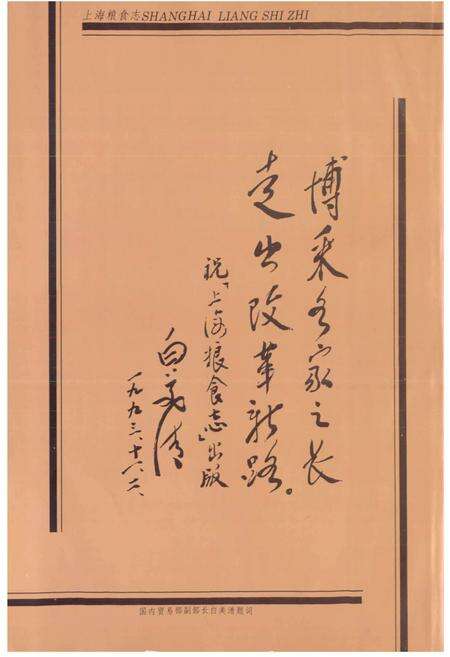 上海粮食志SHANGHAI LIANG SHI ZHI
博采各家之长
走出改革新路。
祝「上海粮食志」出版
白美清
一九九三、十、六
国内贸易部副部长白美清题词